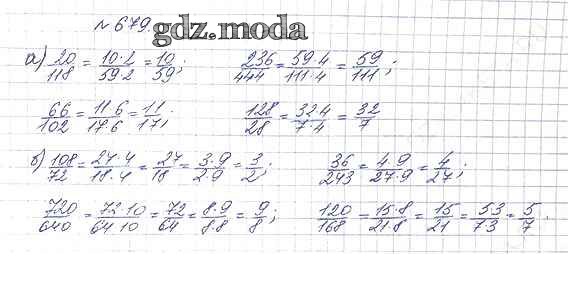 №679.
gdz.moda
а) 20/118 = 10·2/59·2 = 10/59; 236/444 = 59·4/111·4 = 59/111;
66/102 = 11 6/17·6 = 11/17; 128/28 = 32 4/7·4 = 32/7
б) 108/72 = 27·4/18·4 = 27/18 = 3·9/2·9 = 3/2; 36/243 = 4·9/27·9 = 4/27;
720/640 = 72 10/64 10 = 72/64 = 8·9/8·8 = 9/8; 120/168 = 15·8/21·8 = 15/21 = 5 3/7 3 = 5/7.